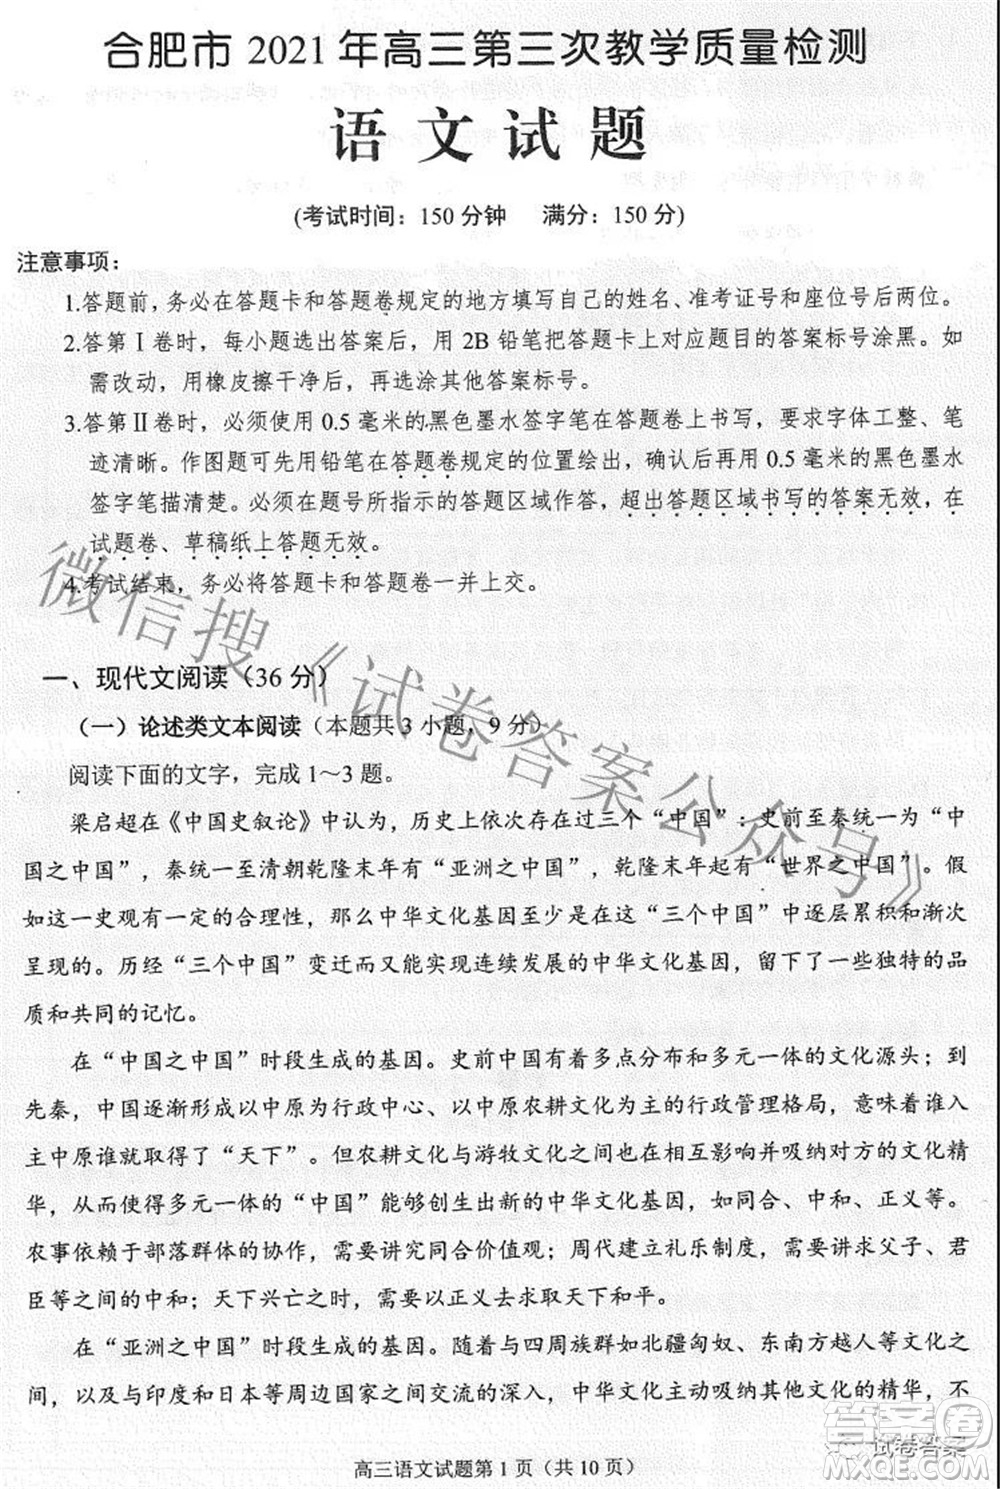 合肥市 2021 年高三第三次教学质量检测
语文试题
(考试时间：150 分钟　满分：150 分)
注意事项：
1.答题前，务必在答题卡和答题卷规定的地方填写自己的姓名、准考证号和座位号后两位。
2.答第Ⅰ卷时，每小题选出答案后，用 2B 铅笔把答题卡上对应题目的答案标号涂黑。如
需改动，用橡皮擦干净后，再选涂其他答案标号。
3.答第Ⅱ卷时，必须使用 0.5 毫米的黑色墨水签字笔在答题卷上书写，要求字体工整、笔
迹清晰。作图题可先用铅笔在答题卷规定的位置绘出，确认后再用 0.5 毫米的黑色墨水
签字笔描清楚。必须在题号所指示的答题区域作答，超出答题区域书写的答案无效，在
试题卷、草稿纸上答题无效。
4.考试结束，务必将答题卡和答题卷一并上交。
一、现代文阅读（36 分）
（一）论述类文本阅读（本题共 3 小题，9 分）
阅读下面的文字，完成 1～3 题。
梁启超在《中国史叙论》中认为，历史上依次存在过三个“中国”：史前至秦统一为“中
国之中国”，秦统一至清朝乾隆末年有“亚洲之中国”，乾隆末年起有“世界之中国”。假
如这一史观有一定的合理性，那么中华文化基因至少是在这“三个中国”中逐层累积和渐次
呈现的。历经“三个中国”变迁而又能实现连续发展的中华文化基因，留下了一些独特的品
质和共同的记忆。
在“中国之中国”时段生成的基因。史前中国有着多点分布和多元一体的文化源头；到
先秦，中国逐渐形成以中原为行政中心、以中原农耕文化为主的行政管理格局，意味着谁入
主中原谁就取得了“天下”。但农耕文化与游牧文化之间也在相互影响并吸纳对方的文化精
华，从而使得多元一体的“中国”能够创生出新的中华文化基因，如同合、中和、正义等。
农事依赖于部落群体的协作，需要讲究同合价值观；周代建立礼乐制度，需要讲求父子、君
臣等之间的中和；天下兴亡之时，需要以正义去求取天下和平。
在“亚洲之中国”时段生成的基因。随着与四周族群如北疆匈奴、东南方越人等文化之
间，以及与印度和日本等周边国家之间交流的深入，中华文化主动吸纳其他文化的精华，不
高三语文试题第 1 页（共 10 页）
微信搜《试卷答案公众号》
答案卷
试卷答案